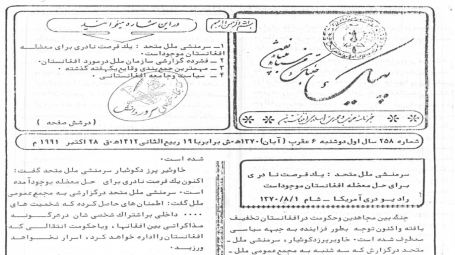 در این شماره میخوانید
۱ــ سرمنشی ملل متحد : یك فرصت نادری برای معضله
افغانستان موجود است۰
۲ــ فشرده گزارش سازمان ملل در مورد افغانستان۰
۳ــ مهمترین جمع بندی وقایع یکهفته گذشته ۰
۴ ــ سیاست و جامعه افغانستانی ۰
( در شش صفحه )
شماره ۲۵۸ سال اول دوشنبه ۶ عقرب ( آبان ) ۱۳۷۰ه‍.ش برابر با ۱۹ ربیع الثانی ۱۴۱۲ه‍.ق ۲۸ اکتبر ۱۹۹۱ م
سرمنشی ملل متحد : یك فرصت نادری
برای حل معضله افغانستان موجود است
رادیوی آمریکا ــ شام ۱۳۷۰/۸/۱
جنگ بین مجاهدین وحکومت در افغانستان تخفیف
یافته واکنون توجه بطور فزاینده به جبهه سیاسی
معطوف شده است ۰ خاویر پرز دکوئیار ، سرمنشی ملل
متحد در گزارش که سه شنبه به مجمع عمومی ملل
شده است ۰
خاوئیر پرز دکوئیار سرمنشی ملل متحد گفت :
اکنون یك فرصت نادری برای حل معضله بوجود آمده
است ۰ سرمنشی ملل متحد در گزارشی به مجمع عمومی
ملل گفت : اطمنان های حاصل کرده که شخصیت های
۰۰۰۰ داخلی براشتراك شخصی شان در هرگونه
مذاکراتی بین افغانها ، ویا حکومت انتقالی که
افغانستان را اداره خواهد کرد ، اسرار نخواهند
ورزید ۰